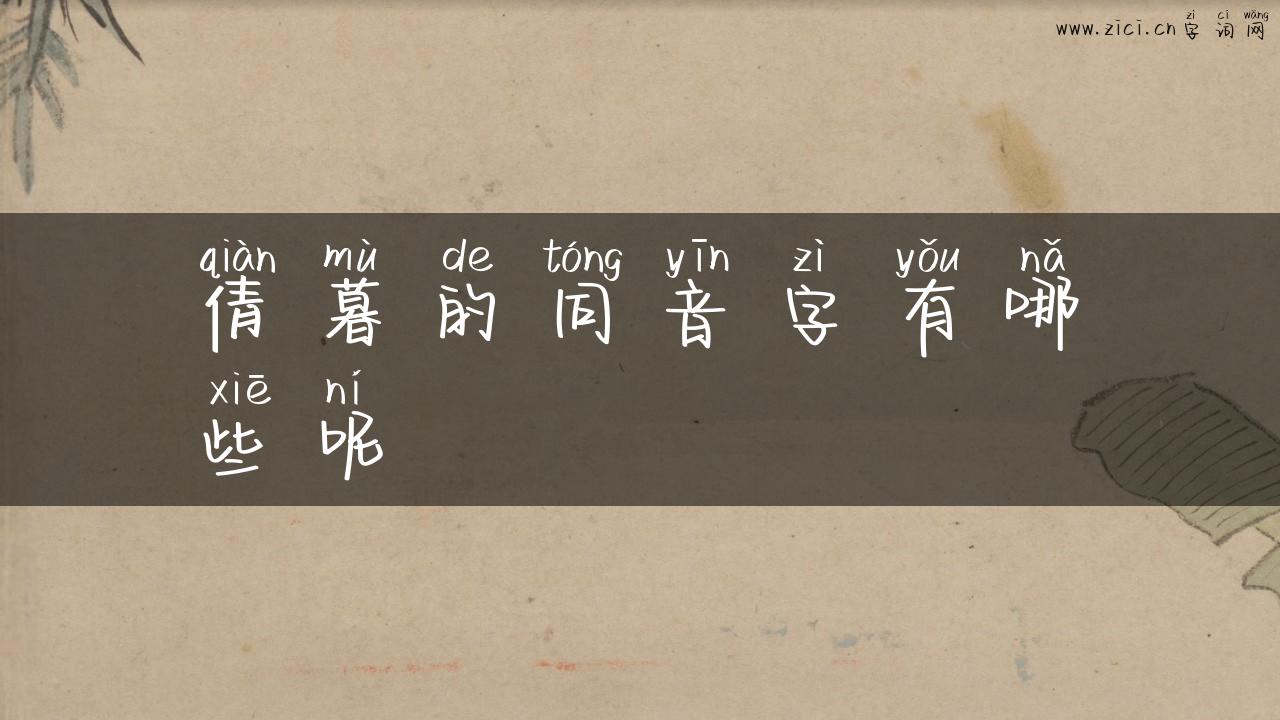 zì cí wǎng
www.zici.cn 字 词 网
qiàn mù de tóng yīn zì yǒu nǎ
倩 暮 的 同 音 字 有 哪
xiē ní
些 呢